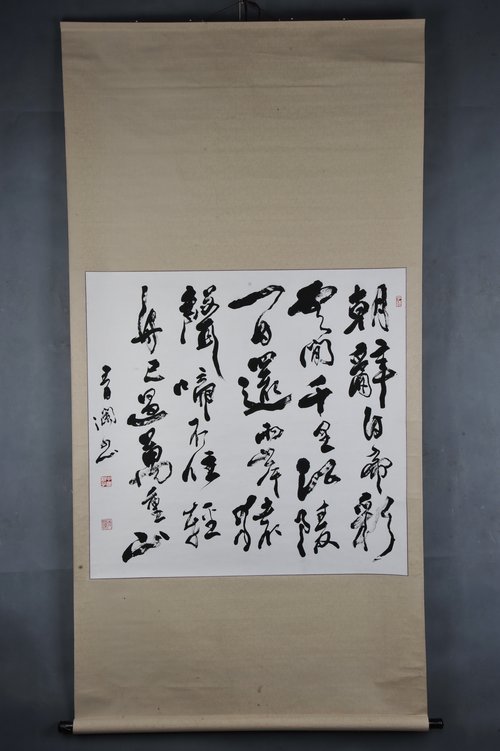 朝辭白帝彩
雲間千里江陵
一日還兩岸猿
聲啼不住輕
舟已過萬重山